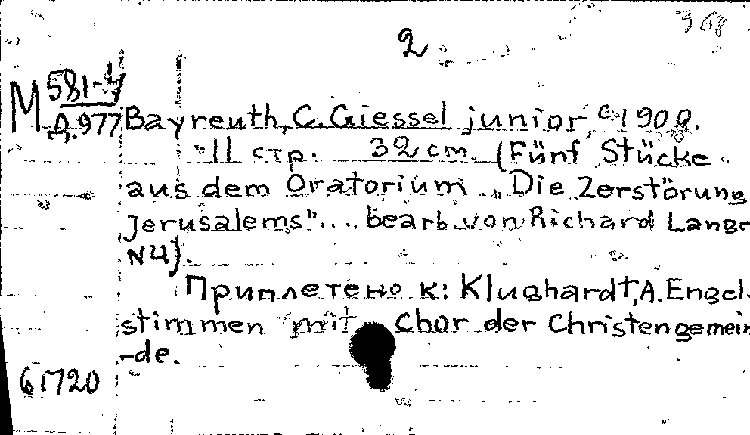 968
2
М 581-4
Д.977
Bayreuth, C. Giessel junior c 1900.
11 стр. 32 cm. (Fünf Stücke
aus dem Oratorium "Die Zerstörung
Jerusalems"... bearb. von Richard Lange
N4).
Приплетено к: Klughardt, A. Engel-
stimmen mit Chor der Christengemein
-de.
61720